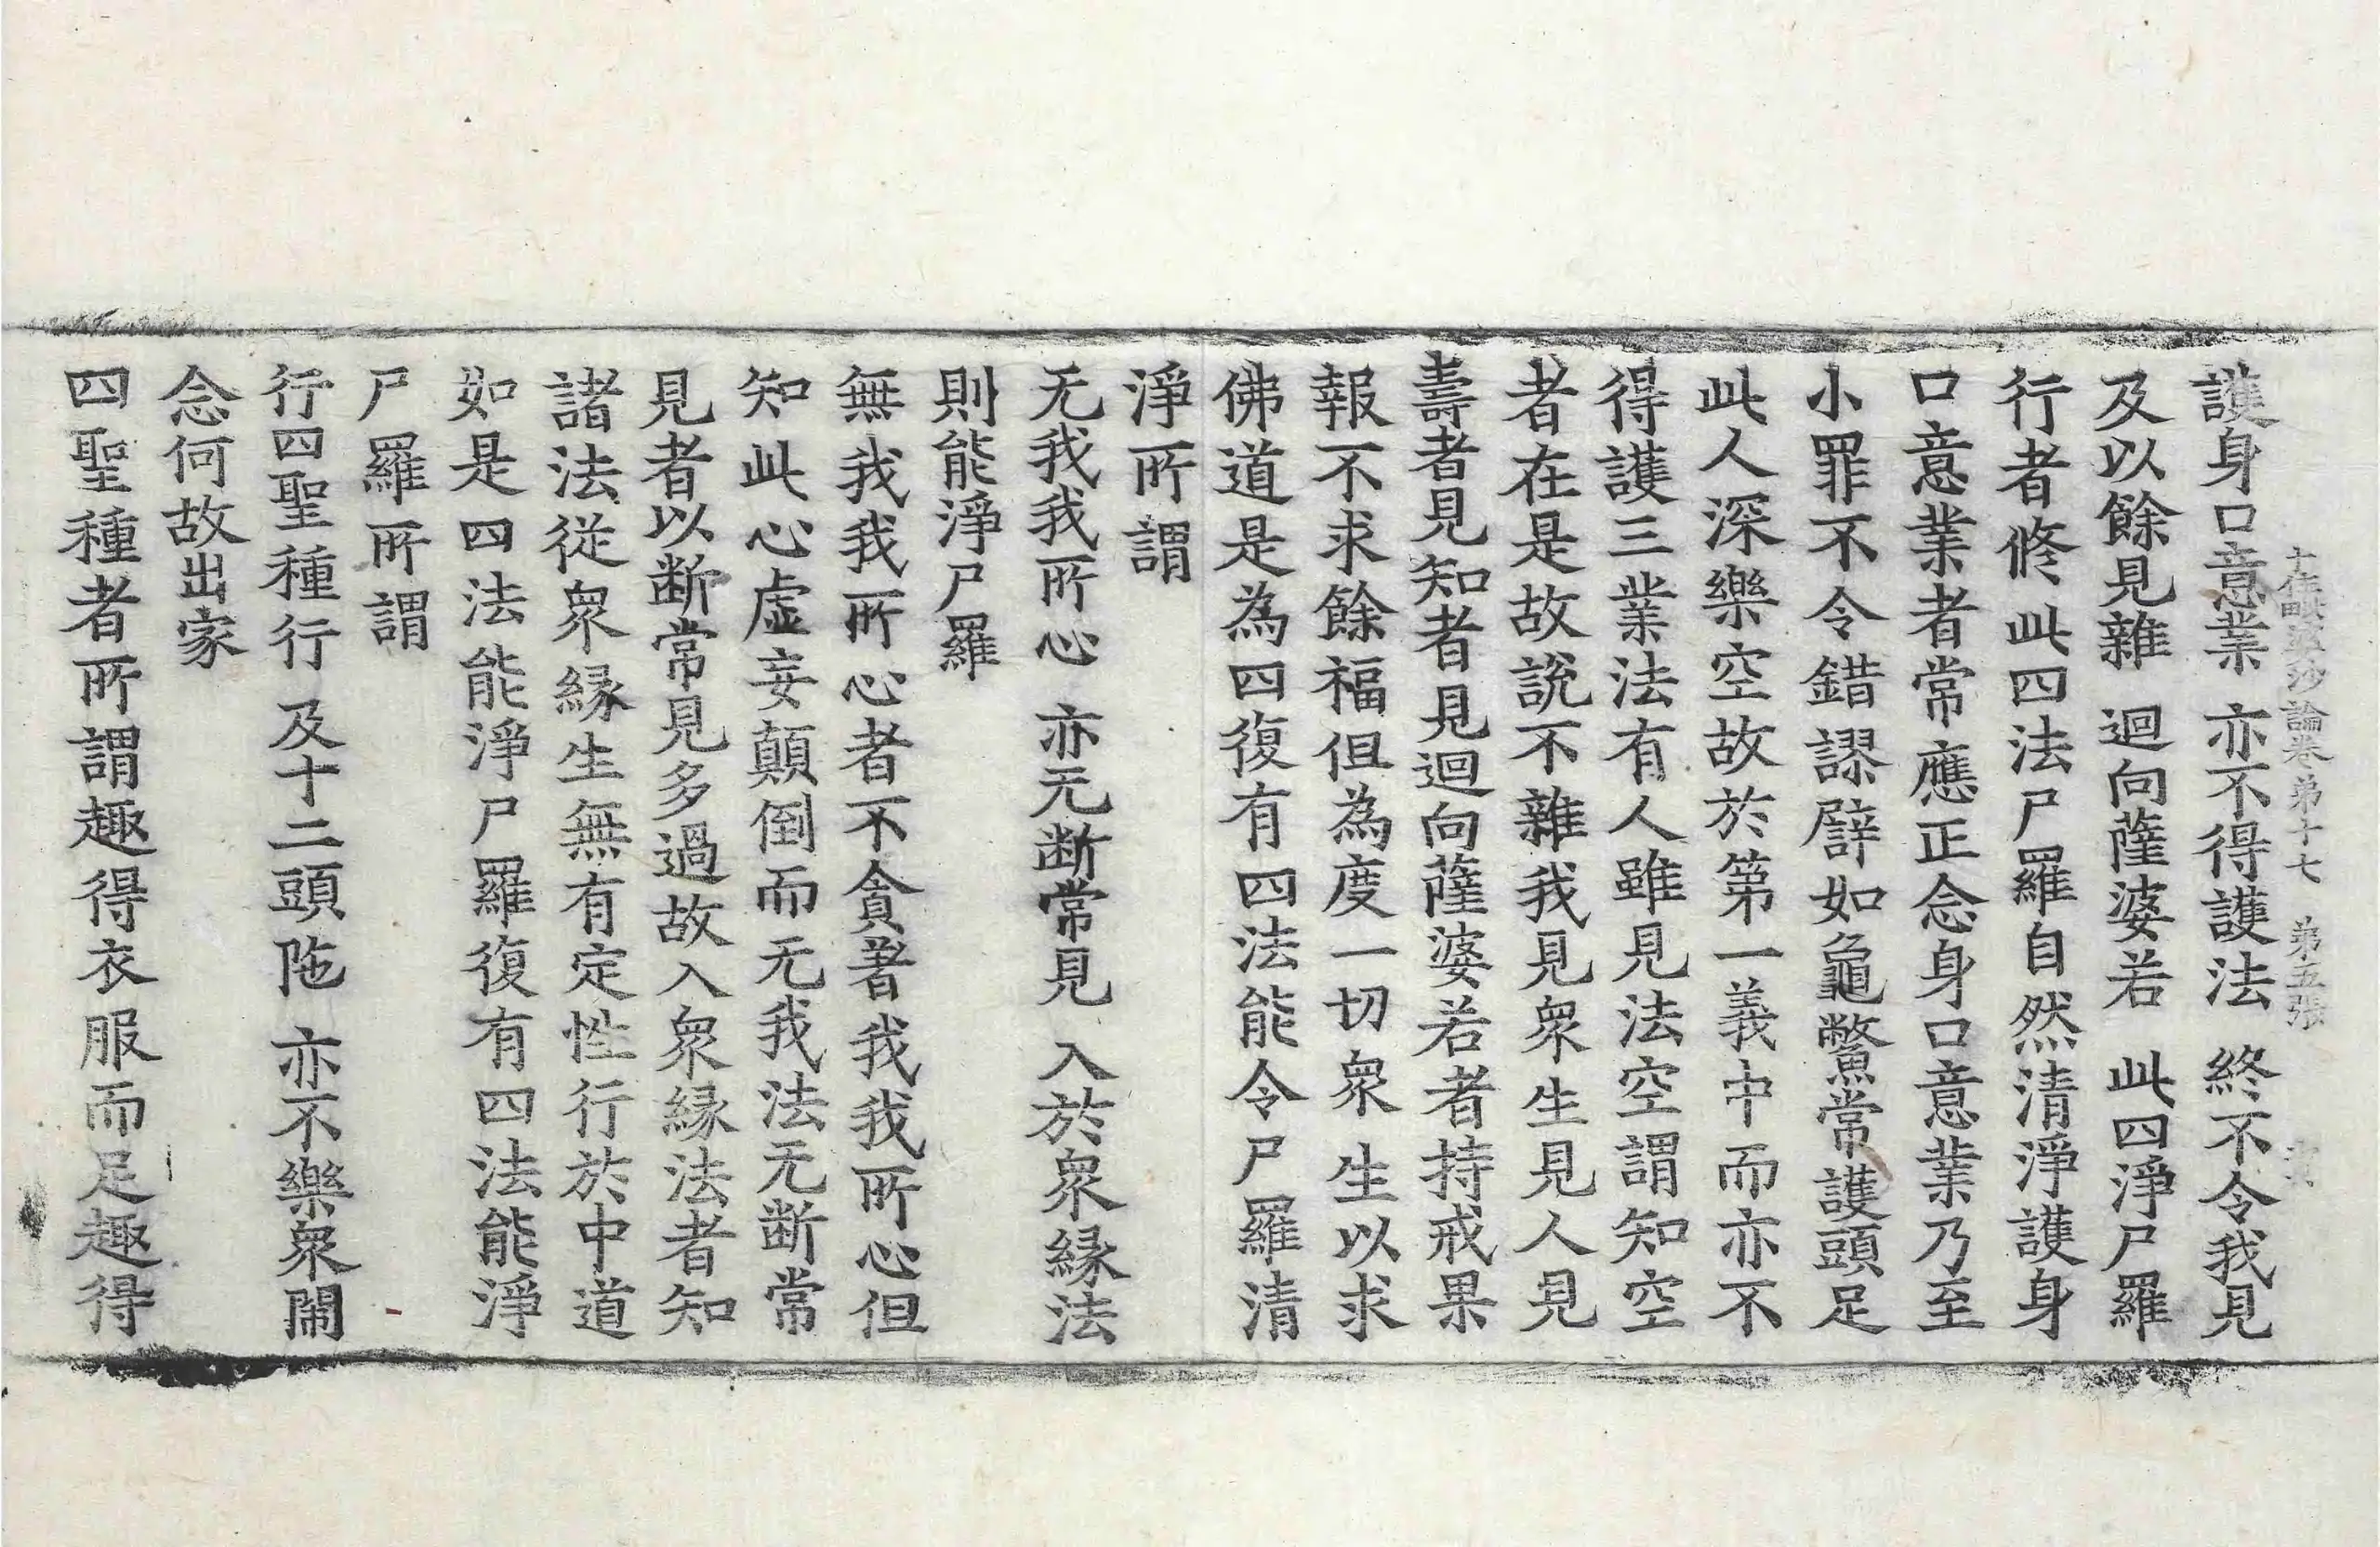 十住毗婆沙論卷弟十七 弟五張
護身口意業 亦不得護法 終不令我見
及以餘見雜 迴向薩婆若 此四淨尸羅
行者修此四法尸羅自然清淨護身
口意業者常應正念身口意業乃至
小罪不令錯謬譬如龜鱉常護頭足
此人深樂空故於第一義中而亦不
得護三業法有人雖見法空謂知空
者在是故說不雜我見衆生見人見
壽者見知者見迴向薩婆若者持戒果
報不求餘福但為度一切衆生以求
佛道是為四復有四法能令尸羅清
淨所謂
无我我所心 亦无断常見 入於衆縁法
則能淨尸羅
無我我所心者不貪著我我所心但
知此心虛妄顛倒而无我法无断常
見者以断常見多過故入衆縁法者知
諸法從衆縁生無有定性行於中道
如是四法能淨尸羅復有四法能淨
尸羅所謂
行四聖種行 及十二頭陁 亦不樂衆閙
念何故出家
四聖種者所謂趣得衣服而足趣得